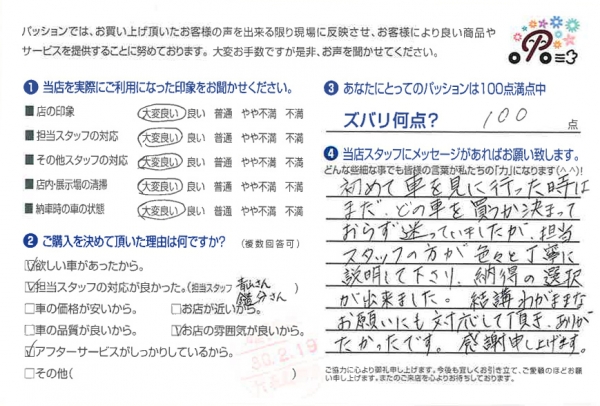 パッションでは、お買い上げ頂いたお客様の声を出来る限り現場に反映させ、お客様により良い商品や
サービスを提供することに努めております。大変お手数ですが是非、お声を聞かせてください。
❶ 当店を実際にご利用になった印象をお聞かせください。
■店の印象 大変良い 良い 普通 やや不満 不満
■担当スタッフの対応 大変良い 良い 普通 やや不満 不満
■その他スタッフの対応 大変良い 良い 普通 やや不満 不満
■店内・展示場の清掃 大変良い 良い 普通 やや不満 不満
■納車時の車の状態 大変良い 良い 普通 やや不満 不満
❷ ご購入を決めて頂いた理由は何ですか? (複数回答可)
☑欲しい車があったから。
☑担当スタッフの対応が良かった。(担当スタッフ 青山さん
さん)
□車の価格が安いから。 □お店が近いから。
□車の品質が良いから。 ☑お店の雰囲気が良いから。
☑アフターサービスがしっかりしているから。
□その他( )
30.2.19
❸ あなたにとってのパッションは100点満点中
ズバリ何点? 100 点
❹ 当店スタッフにメッセージがあればお願い致します。
どんな些細な事でも皆様の言葉が私たちの「力」になります(^^)!
初めて車を見に行った時は
まだ、どの車を買うか決まって
おらず迷っていましたが、担当
スタッフの方が色々と丁寧に
説明して下さり、納得の選択
が出来ました。結講わがままな
お願いにも対応して頂き、ありが
たかったです。感謝申し上げます。
ご協力に心より御礼申し上げます。今後も宜しくお引き立て、ご愛顧のほどお願
い申し上げます。またのご来店を心よりお待ちしております。